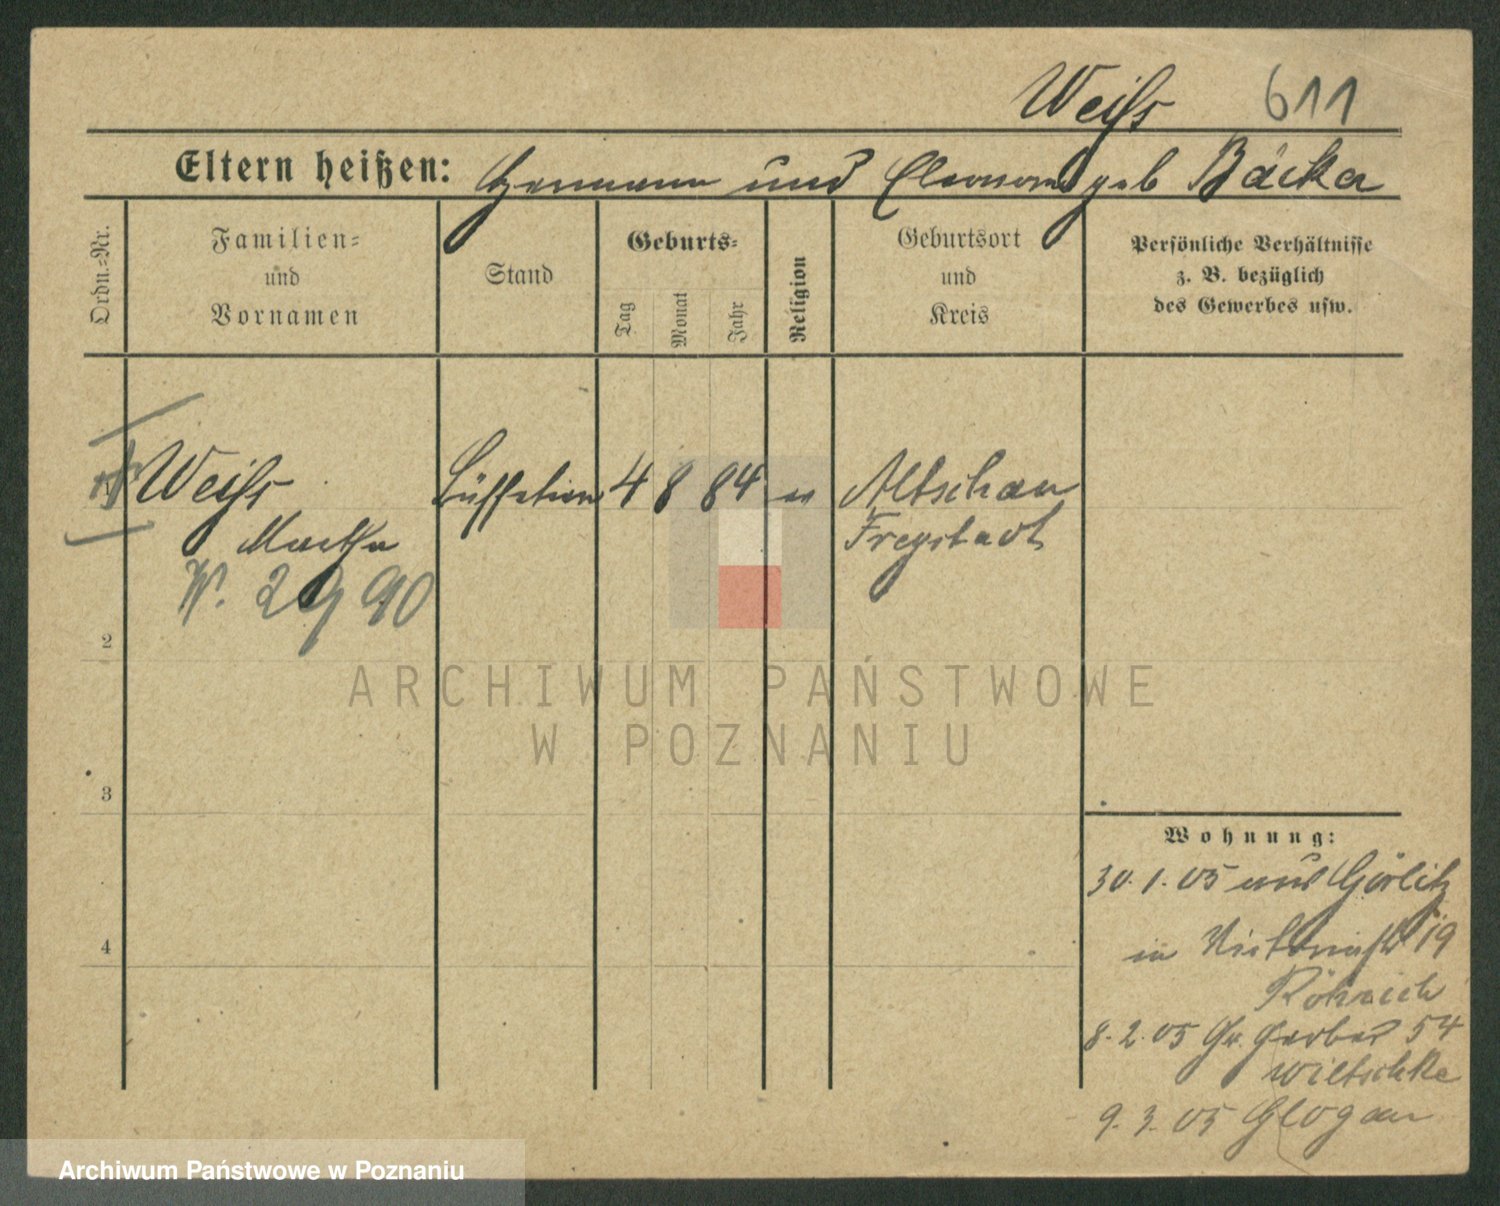 Weiss 611
Eltern heißen: Hermann und Eleonore geb Bäcker
Ordn.-Nr.
Familien-
und
Vornamen
Stand
Geburts-
Tag
Monat
Jahr
Religion
Geburtsort
und
Kreis
Persönliche Verhältnisse
z. B. bezüglich
des Gewerbes usw.
Weiss 4 8 84 Altschau
Martha Freystadt
W. 2990
2
3
4
Wohnung:
30.1.05 aus Görlitz
in Victoriastr 19
8.2.05 Gr. Gerber 54
Wiltschke
9.3.05 Glogau
ARCHIWUM PAŃSTWOWE
W POZNANIU
Archiwum Państwowe w Poznaniu